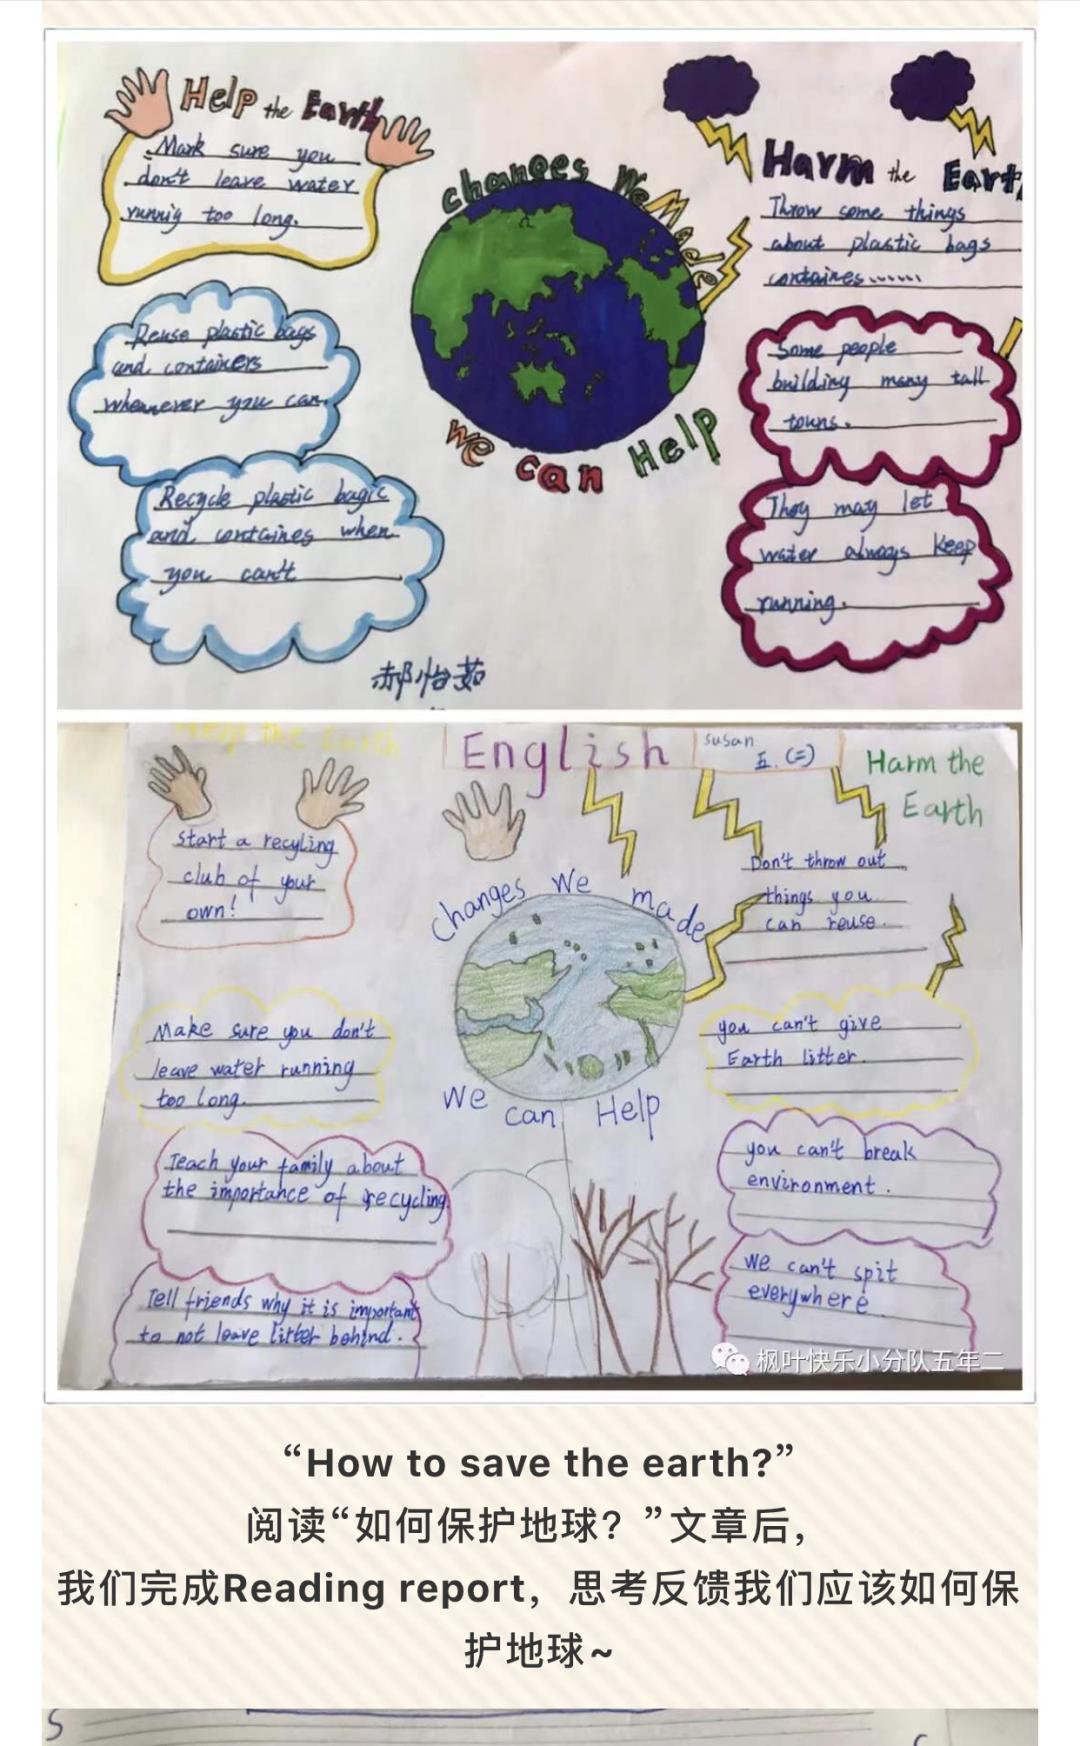 Help the Earth
Mark sure you
don't leave water
runnig too long.
Reuse plastic bags
and containers
whenever you can.
Recycle plastic bagic
and containes when
you can't
changes we Made
we can Help
Harm the Earth
Throw some things
about plastic bags
containes......
Some people
building many tall
touns.
They may let
water always keep
running.
郝怡茹
Help the Earth
English
susan
五.(二)
Harm the
Earth
Start a recyling
club of your
own!
Make sure you don't
leave water running
too long.
Teach your family about
the importance of recycling.
Tell friends why it is important
to not leave litter behind.
Changes We made
We can Help
Don't throw out
things you
can reuse.
you can't give
Earth litter.
you can't break
environment.
We can't spit
everywhere
枫叶快乐小分队五年二
“How to save the earth?”
阅读“如何保护地球？”文章后，
我们完成Reading report，思考反馈我们应该如何保
护地球~